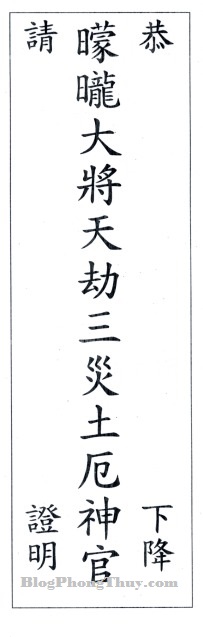 恭 下降
曚曨大將天劫三災土厄神官
請 證明
BlogPhongThuy.com